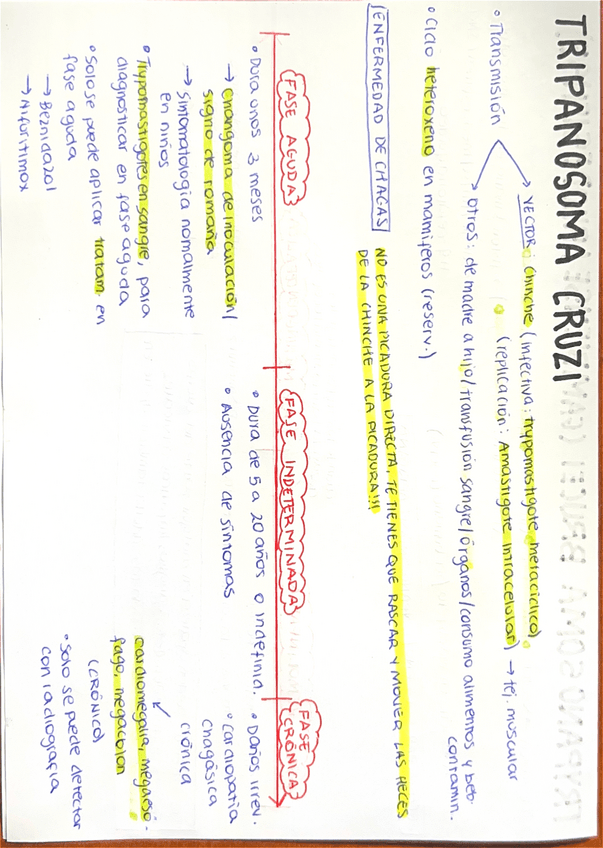 TRIPANOSOMA CRUZI
• Transmisión
→ VECTOR: Chinche (infectiva: trypomastigote metacíclico)
(replicación: Amastigote intracelular) → tej. muscular
→ Otros: de madre a hijo/transfusión sangre/órganos/consumo alimentos y beb.
contamin.
• Ciclo heteroxeno en mamíferos (reserv.)
ENFERMEDAD DE CHAGAS
NO ES UNA PICADURA DIRECTA, TE TIENES QUE RASCAR Y MOVER LAS HECES
DE LA CHINCHE A LA PICADURA!!!
FASE AGUDA
• Dura unos 3 meses
→ Changoma de inoculación/
signo de romaña
→ Sintomatología normalmente
en niños
• Trypomastigotes en sangre, para
diagnosticar en fase aguda
• Solo se puede aplicar tratam. en
fase aguda
→ Beznidazol
→ Nifuritimox
FASE INDETERMINADAS
• Dura de 5 a 20 años o indefinid.
• Ausencia de síntomas
FASE
CRÓNICA
• Daños irrev.
• Cardiopatía
chagásica
crónica
cardiomegalia, megaesó-
fago, megacolon
(CRÓNICO)
• Solo se puede detectar
con radiografía